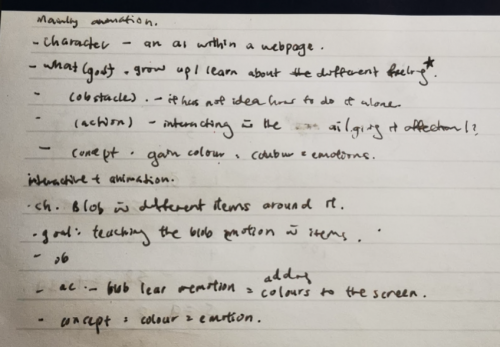 Mainly animation.
- Character - an ai within a webpage.
- what (goal) . grow up / learn about the different feeling*.
- (obstacle) . - it has not idea how to do it alone.
- (action) - interacting w the ai (giving it affection)?
- concept . gain colour . colour = emotions.
interactive + animation.
- ch. Blob w different items around it.
- goal : teaching the blob emotion w items .
- ob
- ac . - blob lear emotion = adding colours to the screen.
- concept = colour = emotion.